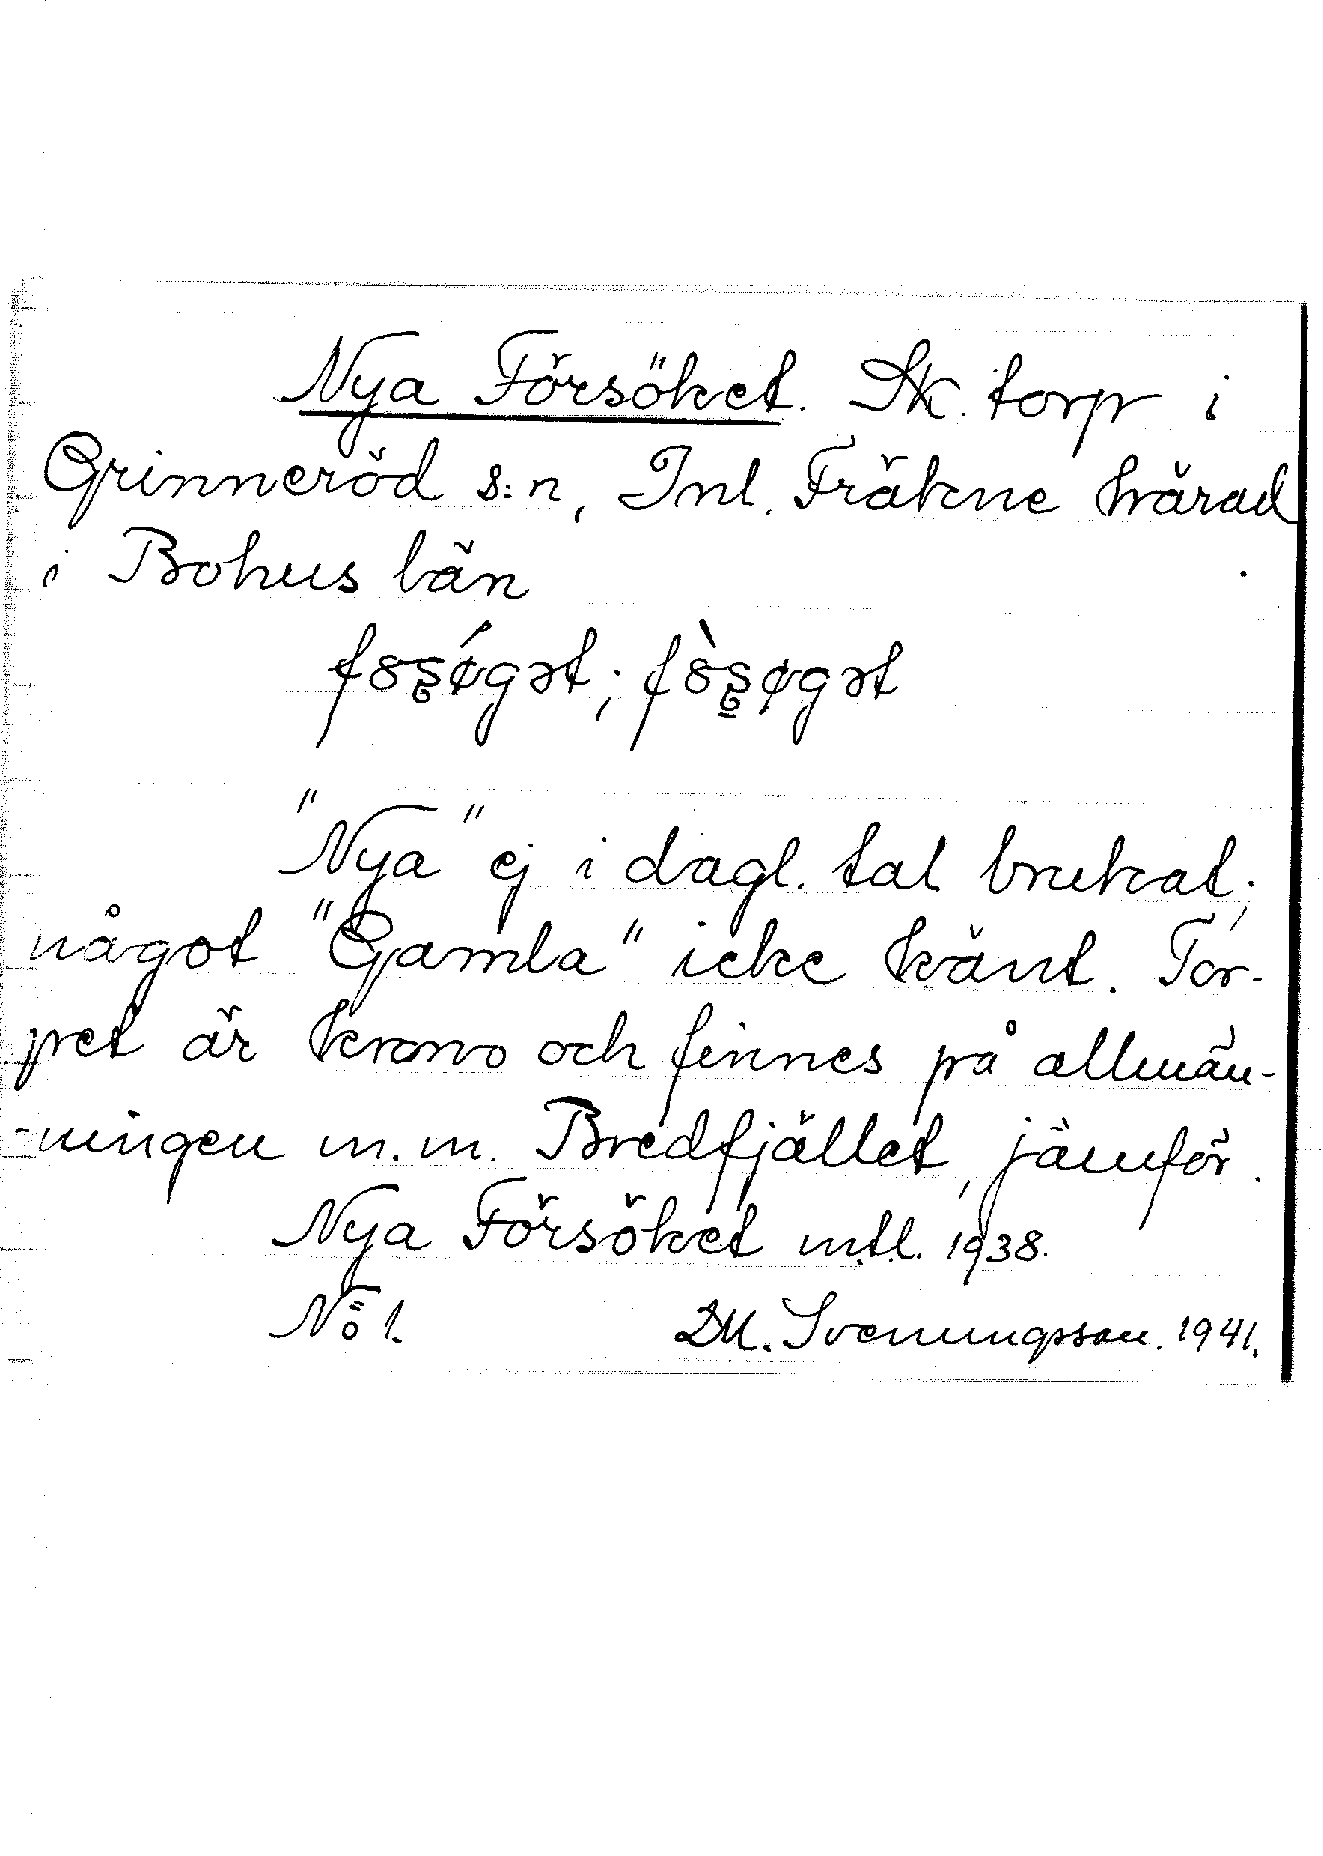 Nya Försöket. Sk. torp i
Grinneröd s:n, Inl. Fräkne härad
i Bohus län
"Nya" ej i dagl. tal brukat;
något "Gamla" icke känt. Tor-
pet är krono och finnes på allmän-
-ningen m.m. Bredfjället, jämför.
Nya Försöket mtl. 1938.
No 1. DM. Svenungsson. 1941.